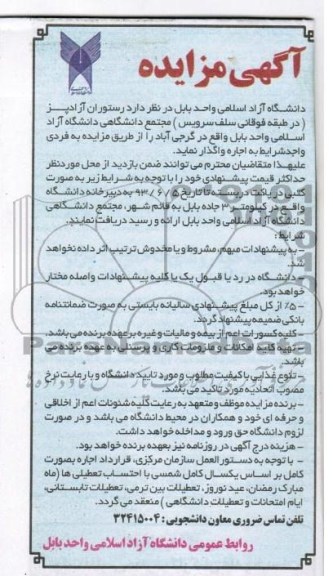 آگهی مزایده
دانشگاه آزاد اسلامی واحد بابل در نظر دارد رستوران آزادپز
( در طبقه فوقانی سلف سرویس ) مجتمع دانشگاهی دانشگاه آزاد
اسلامی واحد بابل واقع در گرجی آباد را از طریق مزایده به فردی
واجدشرایط به اجاره واگذار نماید.
علیهذا متقاضیان محترم می توانند ضمن بازدید از محل موردنظر
حداکثر قیمت پیشنهادی خود را با توجه به شرایط زیر به صورت
کتبی در پاکت در بسته تا تاریخ ۹۳/۶/۵ به دبیرخانه دانشگاه
واقع در کیلومتر ۳ جاده بابل به قائم شهر، مجتمع دانشگاهی
دانشگاه آزاد اسلامی واحد بابل ارائه و رسید دریافت نمایند.
شرایط:
- به پیشنهادات مبهم، مشروط و یا مخدوش ترتیب اثر داده نخواهد
شد.
- دانشگاه در رد یا قبول یک یا کلیه پیشنهادات واصله مختار
خواهد بود.
- ۵٪ از کل مبلغ پیشنهادی سالیانه بایستی به صورت ضمانتنامه
بانکی ضمیمه پیشنهاد گردد.
- کلیه کسورات اعم از بیمه و مالیات و غیره برعهده برنده می باشد.
- تهیه کلیه امکانات و ملزومات کاری و پرسنلی به عهده برنده می
باشد.
- تنوع غذایی با کیفیت مطلوب و مورد تایید دانشگاه و با رعایت نرخ
مصوب اتحادیه مورد تاکید می باشد.
- برنده مزایده موظف و متعهد به رعایت کلیه شئونات اعم از اخلاقی
و حرفه ای خود و همکاران در محیط دانشگاه می باشد و در صورت
لزوم دانشگاه حق ورود و مداخله خواهد داشت.
- هزینه درج آگهی در روزنامه نیز بعهده برنده خواهد بود.
- با توجه به دستورالعمل سازمان مرکزی، قرارداد اجاره بصورت
کامل بر اساس یکسال کامل شمسی با احتساب تعطیلی ها (ماه
مبارک رمضان، عید نوروز، تعطیلات بین ترمی، تعطیلات تابستانی،
ایام امتحانات و تعطیلات دانشگاهی ) منعقد می گردد.
تلفن تماس ضروری معاون دانشجویی : ۳۲۴۱۵۰۰۴
روابط عمومی دانشگاه آزاد اسلامی واحد بابل